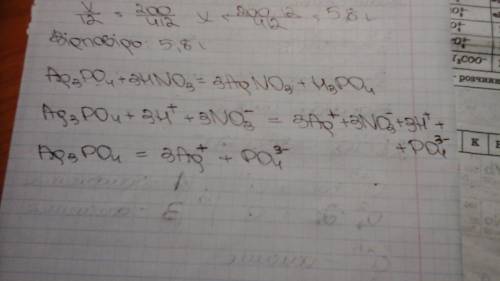 x/12 = 200/412 x = 200·12/412 = 5,8 г
Відповідь: 5,8 г
Ag₃PO₄ + 3HNO₃ = 3AgNO₃ + H₃PO₄
Ag₃PO₄ + 3H⁺ + 3NO₃⁻ = 3Ag⁺ + 3NO₃⁻ + 3H⁺ +
+ PO₄³⁻
Ag₃PO₄ = 3Ag⁺ + PO₄³⁻
розчин
К
Н